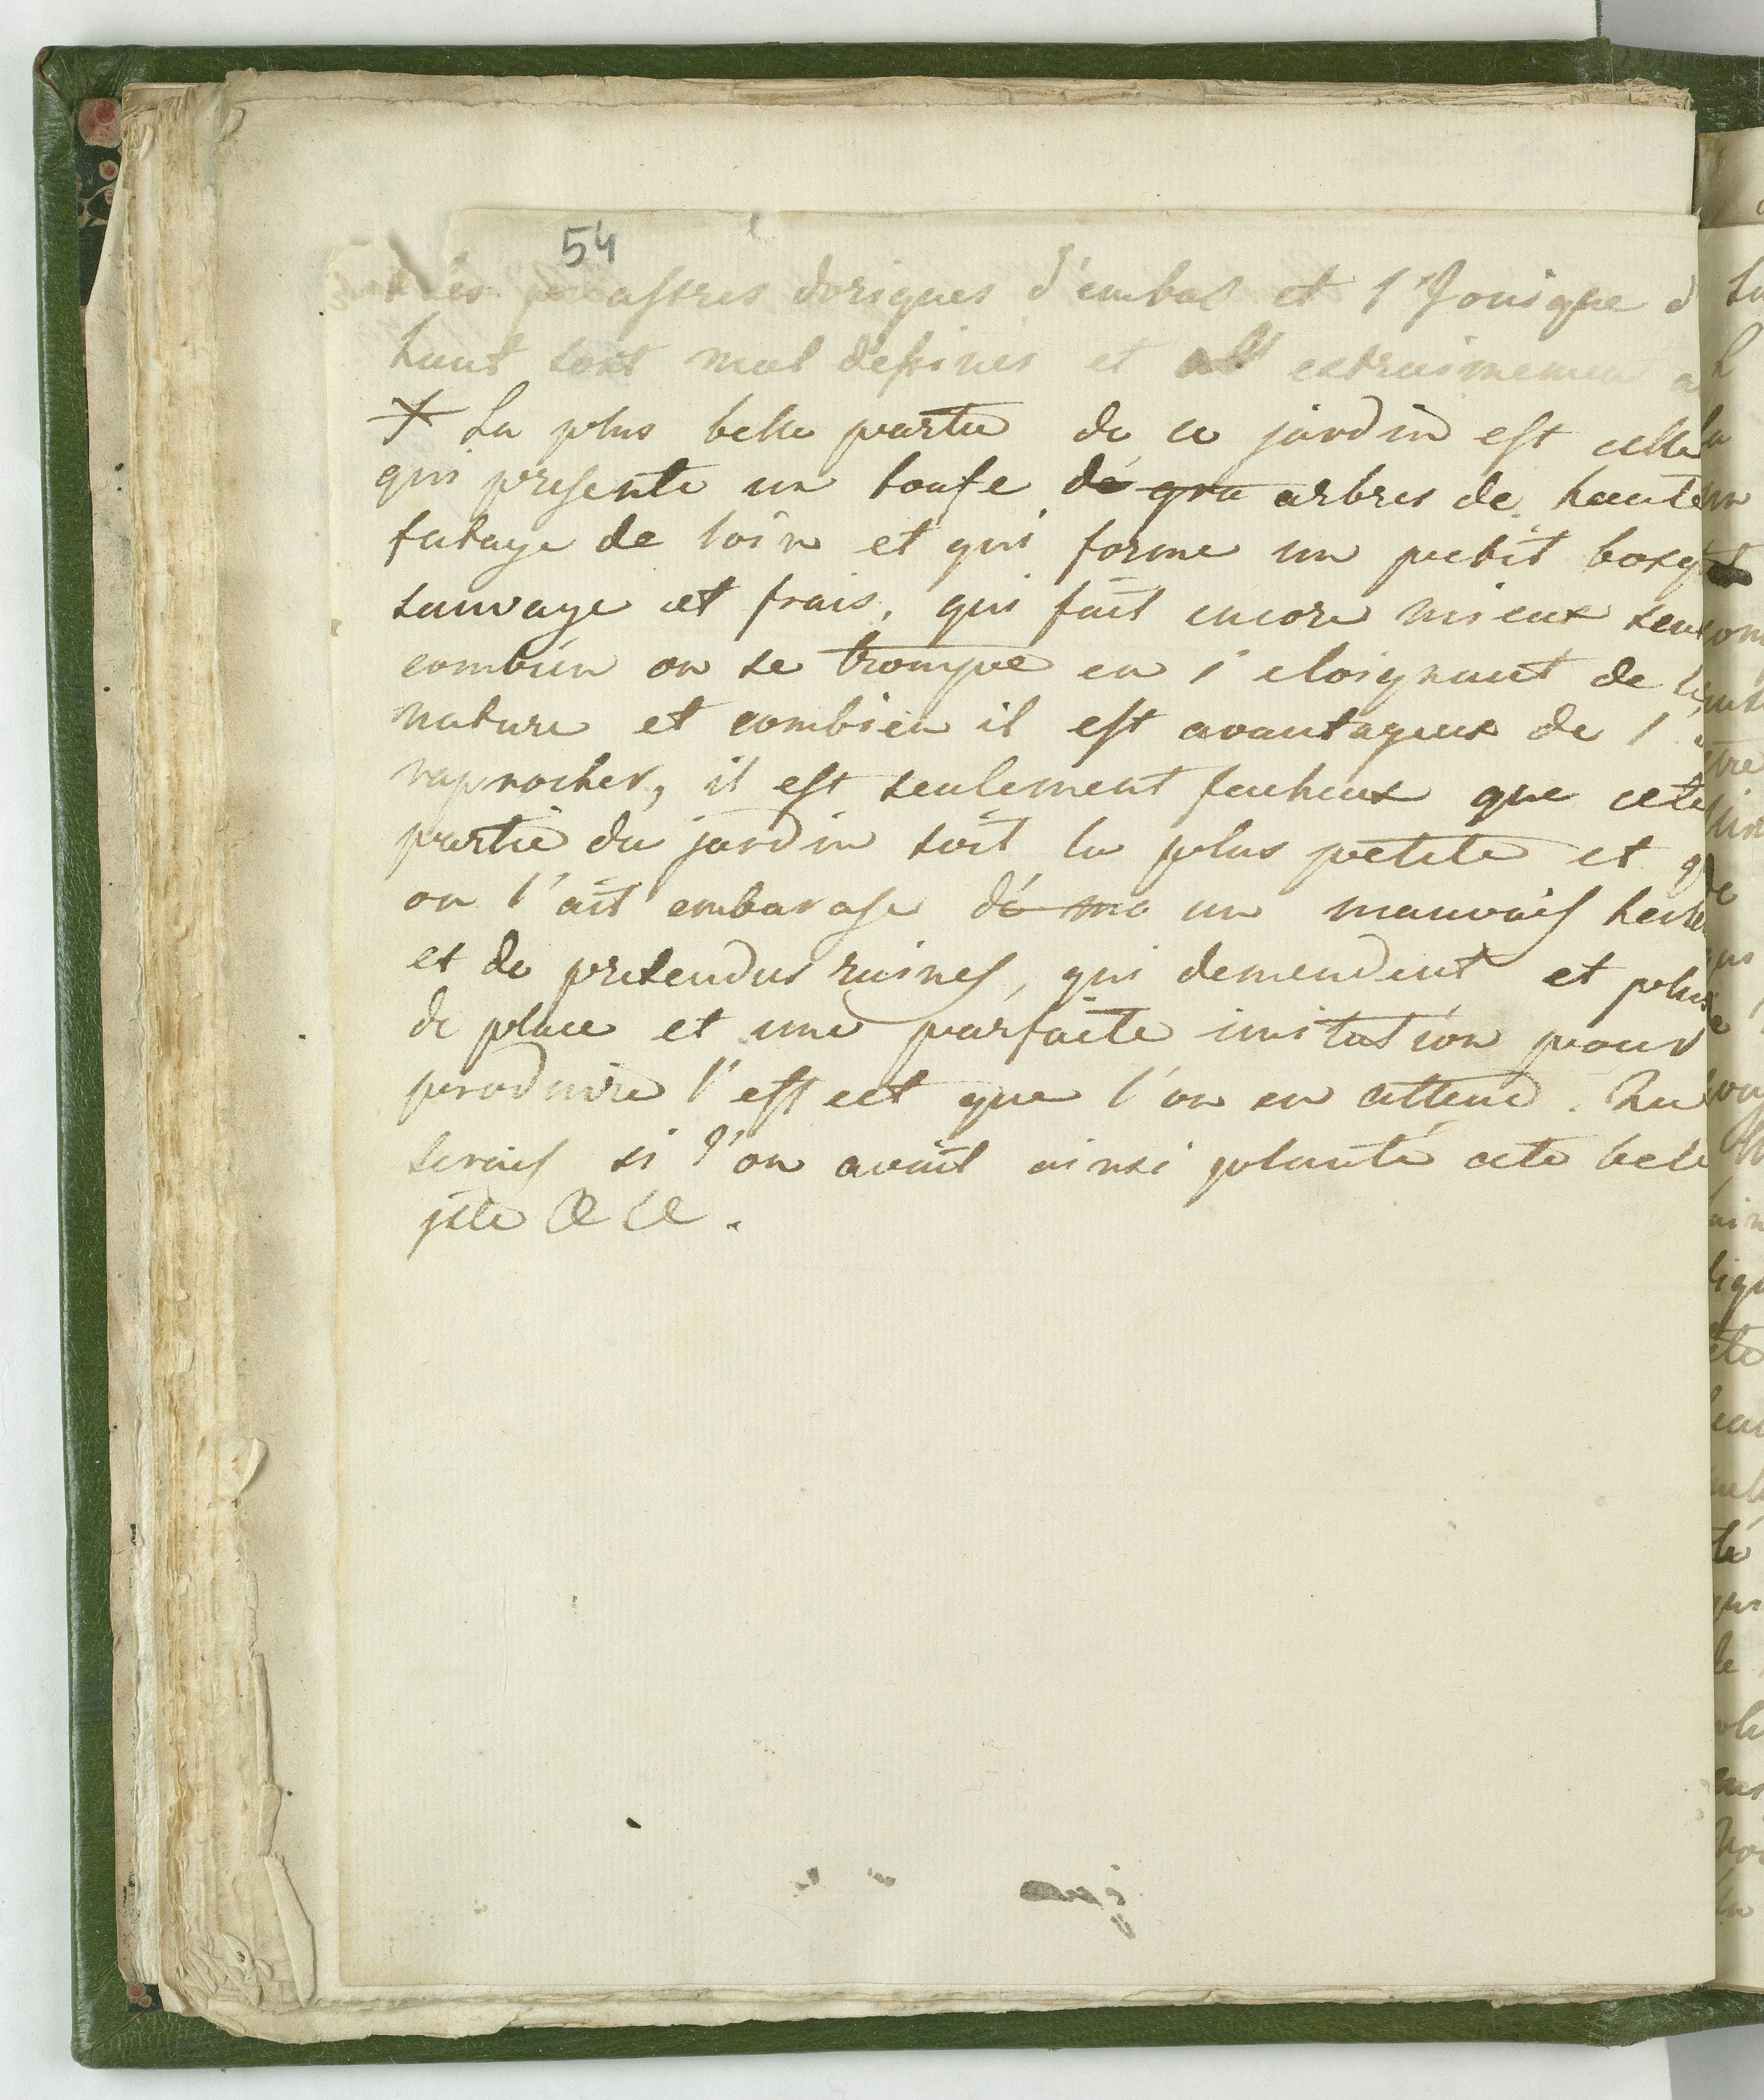 54
les pilastres doriques d'embas et l'Jonique d
haut sont mal dessines et extraimement
La plus belle partie de ce jardin est celle
qui presente un toufe de gra arbres de haute
futaye de loin et qui forme un petit bosq
sauvage et frais, qui fait encore mieux sen
combien on se trompe en s'eloignant de la
nature et combien il est avantageux de l'
raprocher, il est seulement facheux que cete
partie du jardin soit la plus petite et q
on l'ait embarasse de ma un mauvais
et de pretendus ruines, qui demendent et plus
de place et une parfaite imitation pour
produire l'effect que l'on en attend.
serais si l'on avait ainsi planté cete bele